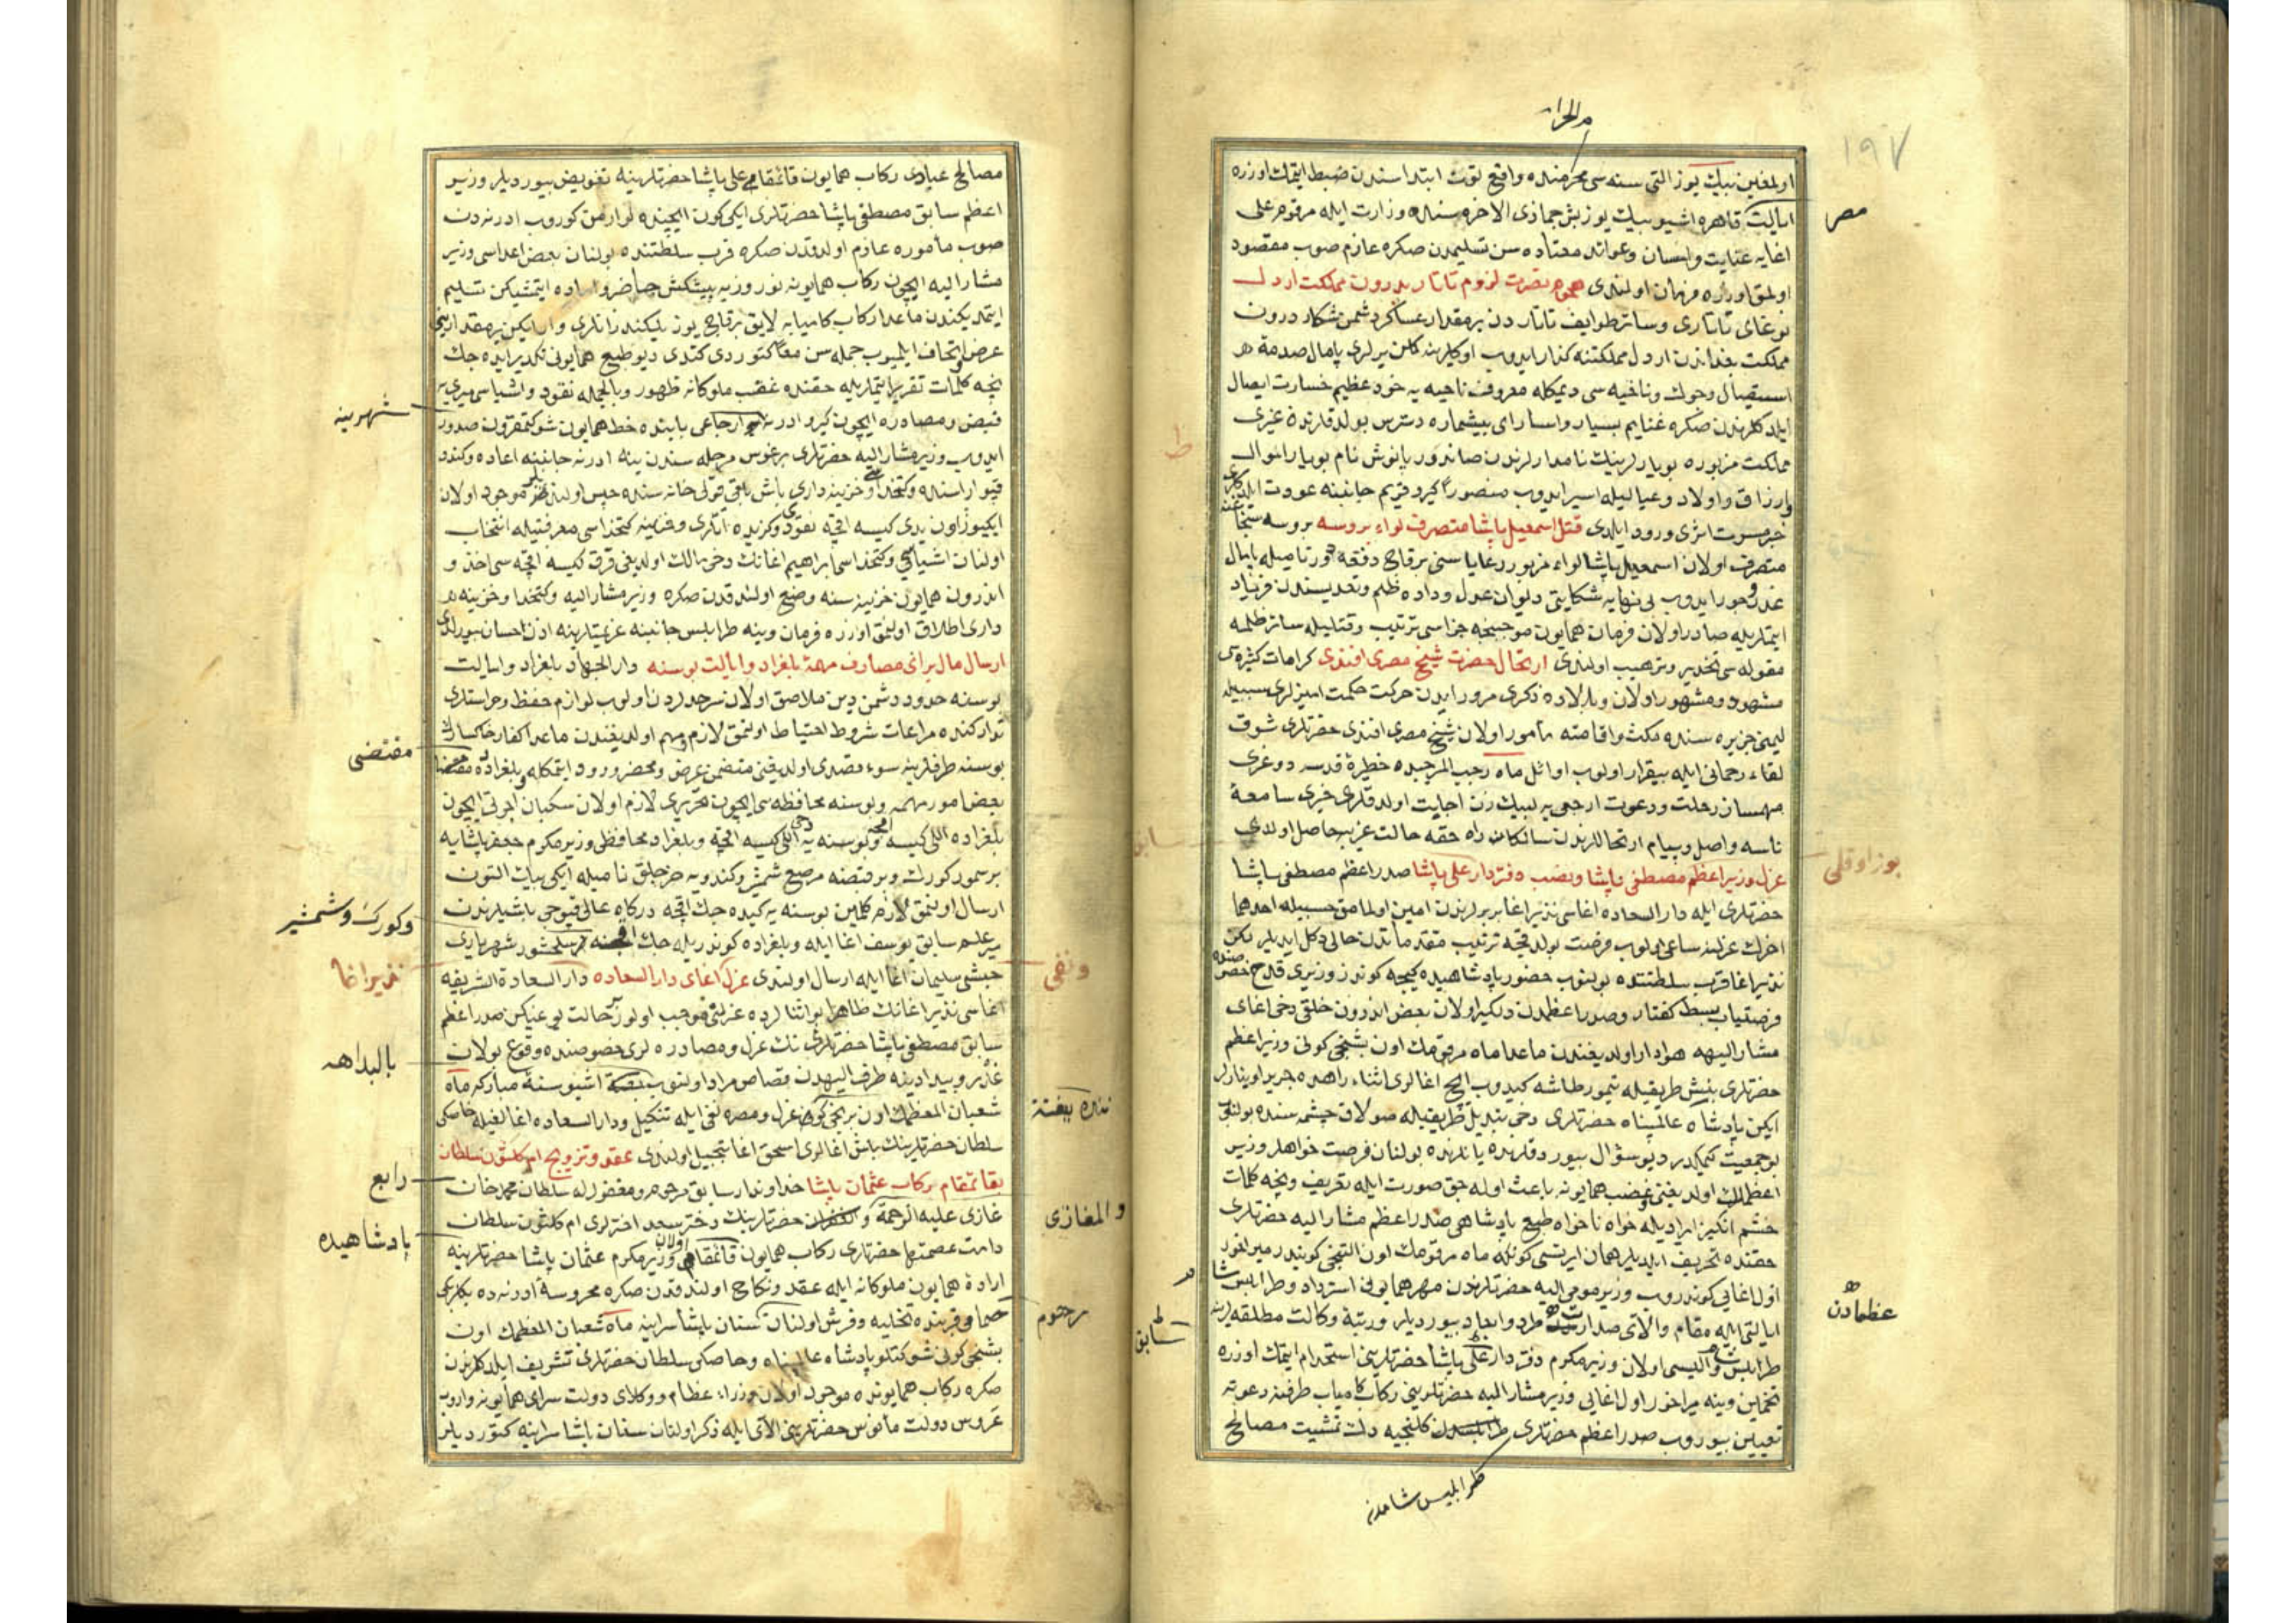 م الحرام
١٩٧
اولمغين بيك يوز التى سنه سى محرمنده واقع توت ابتداسندن ضبط ايتمك اوزره
مصر
ايالت قاهره اشبو بيك يوز بش جمازى الاخره سنده وزارت ايله مرقوم على
اغايه عنايت واحسان وعوائد معتاده سن تسليمدن صكره عازم صوب مقصود
اولمق اوزره فرمان اولندى هجوم نصرت لزوم تاتار بدرون مملكت اردل
نوغاى تاتارى وسائر طوايف تاتاردن بر مقدار عساكر دشمن شكار درون
مملكت بغداندن اردل مملكتنه كذار ايدوب اوكلرينه كلن يرلرى پامال صدمهٔ
استيصال وحوك وناحيه سى ديمكله معروف ناحيه يه خود عظيم خسارت ايصال
ايلدكلرندن صكره غنايم بسيار واساراى بيشماره دسترس بولدقلرندن غيرى
مملكت مزبوره بويارلرينك نامدارلرندن صاندور يانوش نام بويار اموال
وارزاق واولاد وعياليله اسير ايدوب منصورا كيرو قريم جانبنه عودت
خبر مسرت اثرى ورود ايلدى قتل اسمعيل پاشا متصرف لواء بروسه بروسه سنجاغنه
متصرف اولان اسمعيل پاشا لواء مزبور رعاياسنى بر قاچ دفعه دورتاميله پايمال
غدر وجور ايدوب بى نهايه شكايتى ديوان عدل وداده ظلم وتعديسندن فرياد
ايتملريله صادر اولان فرمان همايون موجبنجه جزاسى ترتيب وقتليله سائر ظلمه
مقوله سى تحذير وترهيب اولندى ارتحال حضرت شيخ مصرى افندى كرامات كثيره سى
مشهود ومشهور اولان وبالاده ذكرى مرور ايدن حركت حكمت اميزلرى سببيله
ليمنى جزيره سنده مكث واقامته مأمور اولان شيخ مصرى افندى حضرتلرى شوق
لقاء رحمانى ايله بيقرار اولوب اوائل ماه رجب المرجبده حظيرهٔ قدسه دوغرى
مهمساز رحلت ودعوت ارجعى يه لبيك زن اجابت اولدقلرى خبرى سامعهٔ
ناسه واصل وپيام ارتحاللرندن سالكان راه حقه حالت غريبه حاصل اولدى
بوزاوقلى
سابق
عزل وزير اعظم مصطفى پاشا ونصب دفتردار على پاشا صدر اعظم مصطفى پاشا
حضرتلرى ايله دار السعاده اغاسى نذير اغا بربرلرندن امين اولمامق حسبيله احدهما
اخرك عزلنه ساعى اولوب فرصت بولدقجه ترتيب مقدماتدن خالى دكل ايديلر لكن
نذير اغا قرب سلطنتده بولنوب حضور پادشاهيده كيجه كوندز وزيرى قدح
فرصتياب بسط كفتار وصدر اعظمدن دلكير اولان بعض اندرون خلقى دخى اغاى
مشار اليهه هوادار اولديغندن ماعدا ماه مرقومك اون بشنجى كونى وزير اعظم
حضرتلرى بنش طريقيله تيمورطاشه كيدوب ايچ اغالرى اثناء راهده جريد اوينارلر
ايكن پادشاه عالمپناه حضرتلرى دخى تبديل طريقيله صولاق چشمه سنده بولنوب
بو جمعيت كيمكدر ديو سؤال بيوردقلرنده يانلرنده بولنان فرصت خواهلر وزير
اعظمك اولديغنى غضب همايونه باعث اوله جق صورت ايله تعريف ونچه كلمات
خشم انكيز ايراديله خواه ناخواه طبع پادشاهى صدر اعظم مشار اليه حضرتلرى
حقنده تحريف ايلديلر همان ايرتسى كونكه ماه مرقومك اون التنجى كونيدر ميراخور
عظمادن
اول اغايى كوندروب وزير مومى اليه حضرتلرندن مهر همايونى استرداد وطرابلس شام
سابق
ايالتى ايله مقام والاى صدارتدن طرد وابعاد بيورديلر ورتبهٔ وكالت مطلقه لرينه
طرابلس شام واليسى اولان وزير مكرم دفتردار على پاشا حضرتلرينى استخدام ايتمك اوزره
تخمين وينه ميراخور اول اغايى وزير مشار اليه حضرتلرينى ركاب كامياب طرفنه دعوته
تعيين بيوروب صدر اعظم حضرتلرى كلنجيه دك تمشيت مصالح
طرابلس شامدن
مصالح عبادى ركاب همايون قائمقامى على پاشا حضرتلرينه تفويض بيورديلر وزير
اعظم سابق مصطفى پاشا حضرتلرى ايكى كون ايچنده لوازمن كوروب ادرنه دن
صوب مأموره عازم اولدقدن صكره قرب سلطنتده بولنان بعض اعداسى وزير
مشار اليه ايچون ركاب همايونه نوروزيه پيشكش حاضر واماده ايتمشيكن تسليم
ايتمديكندن ماعدا ركاب كاميابه لايق بر قاچ يوز يليكندز اتلرى وار ايكن بر مقدارينى
عرض واتحاف ايلميوب جمله سن معا كتوردى كتدى ديو طبع همايونى تكدير ايده جك
نچه كلمات تقرير ايتملريله حقنده غضب ملوكانه ظهور وبالجمله نقود واشياسى ميرى يه
شهرينه
قبض ومصادره ايچون كيرو ادرنه ارجاعى بابنده خط همايون شوكتمقرون صدور
ايدوب وزير مشار اليه حضرتلرى برغوس مرحله سندن ينه ادرنه جانبنه اعاده وكندو
قپو اراسنده وكتخداسى وخزينه دارى باش باقى قولى خانه سنده حبس اولنديلر موجود اولان
ايكيوز اون يدى كيسه اقچه نقودى وكزيده اتلرى وخزينه كتخداسى معرفتيله انتخاب
اولنان اشياسى وكتخداسى ابراهيم اغانك دخى مالك اولديغى قرق كيسه اقچه سى اخذ و
اندرون همايون خزينه سنه وضع اولندقدن صكره وزير مشار اليه وكتخدا وخزينه
دارى اطلاق اولنمق اوزره فرمان وينه طرابلس جانبنه عزيمتلرينه اذن احسان بيورلدى
ارسال مال براى مصارف مهمهٔ بلغراد وايالت بوسنه دار الجهاد بلغراد وايالت
بوسنه حدود دشمن دين ملاصق اولان سرحدلردن اولوب لوازم حفظ وحراستلرى
تداركنده مراعات شروط احتياط اولنمق لازم ومهم اولديغندن ماعدا كفار خاكسارك
مقتضى
بوسنه طرفلرينه سوء قصدى اولديغنى متضمن عرض ومحضر ورود ايتمكله وبلغراده
بعض امور مهمه وبوسنه محافظه سى ايچون تحريرى لازم اولان سكبان اجرتى ايچون
بلغراده اللى كيسه اقچه وبوسنه يه دخى اللى كيسه اقچه وبلغراد محافظى وزير مكرم جعفر پاشايه
بر سمور كورك وبر قبضه مرصع شمشير وكندويه خرجلق ناميله ايكى بيك التون
وكورك وشمشير
ارسال اولنمق لازم كلمكين بوسنه يه كيده جك اقچه دركاه عالى قپوجى باشيلرندن
مير علم سابق يوسف اغا ايله وبلغراده كوندريله جك اقچه سلحشور شهريارى
نذير اغا
ونفى
حبشى سليمان اغا ايله ارسال اولندى عزل اغاى دار السعاده دار السعادة الشريفه
اغاسى نذير اغانك ظاهرا بو اثنالرده عزلنى موجب اولور حالت يوغيكن صدر اعظم
بالبداهه
سابق مصطفى پاشا حضرتلرينك عزل ومصادره لرى خصوصنده وقوع بولان
غدر وبيدادينه طرف الهيدن قصاص مراد اولنوب اشبو سنهٔ مباركه ماه
نده بغتة
شعبان المعظمك اون برنجى كونى عزل ومصره نفى ايله تنكيل ودار السعاده اغالغيله خاصكى
سلطان حضرتلرينك باش اغالرى اسحق اغا تبجيل اولندى عقد وتزويج ام كلثوم سلطان
رابع
بقائمقام ركاب عثمان پاشا خداوندكار سابق مرحوم ومغفور له سلطان محمد خان
والمغازى
غازى عليه الرحمة والغفران حضرتلرينك دختر سعد اخترلرى ام كلثوم سلطان
پادشاهيده
دامت عصمتها حضرتلرى ركاب همايون قائمقامى اولان وزير مكرم عثمان پاشا حضرتلرينه
ارادهٔ همايون ملوكانه ايله عقد ونكاح اولندقدن صكره محروسهٔ ادرنه ده بكلربكى
مرحوم
حمامى قربنده تخليه وفرش اولنان سنان پاشا سراينه ماه شعبان المعظمك اون
بشنجى كونى شوكتلو پادشاه عالمپناه وخاصكى سلطان حضرتلرى تشريف ايلدكلرندن
صكره ركاب همايونده موجود اولان وزراء عظام ووكلاى دولت سراى همايونه واروب
عروس دولت مأنوس حضرتلرينى الاى ايله ذكر اولنان سنان پاشا سراينه كتورديلر